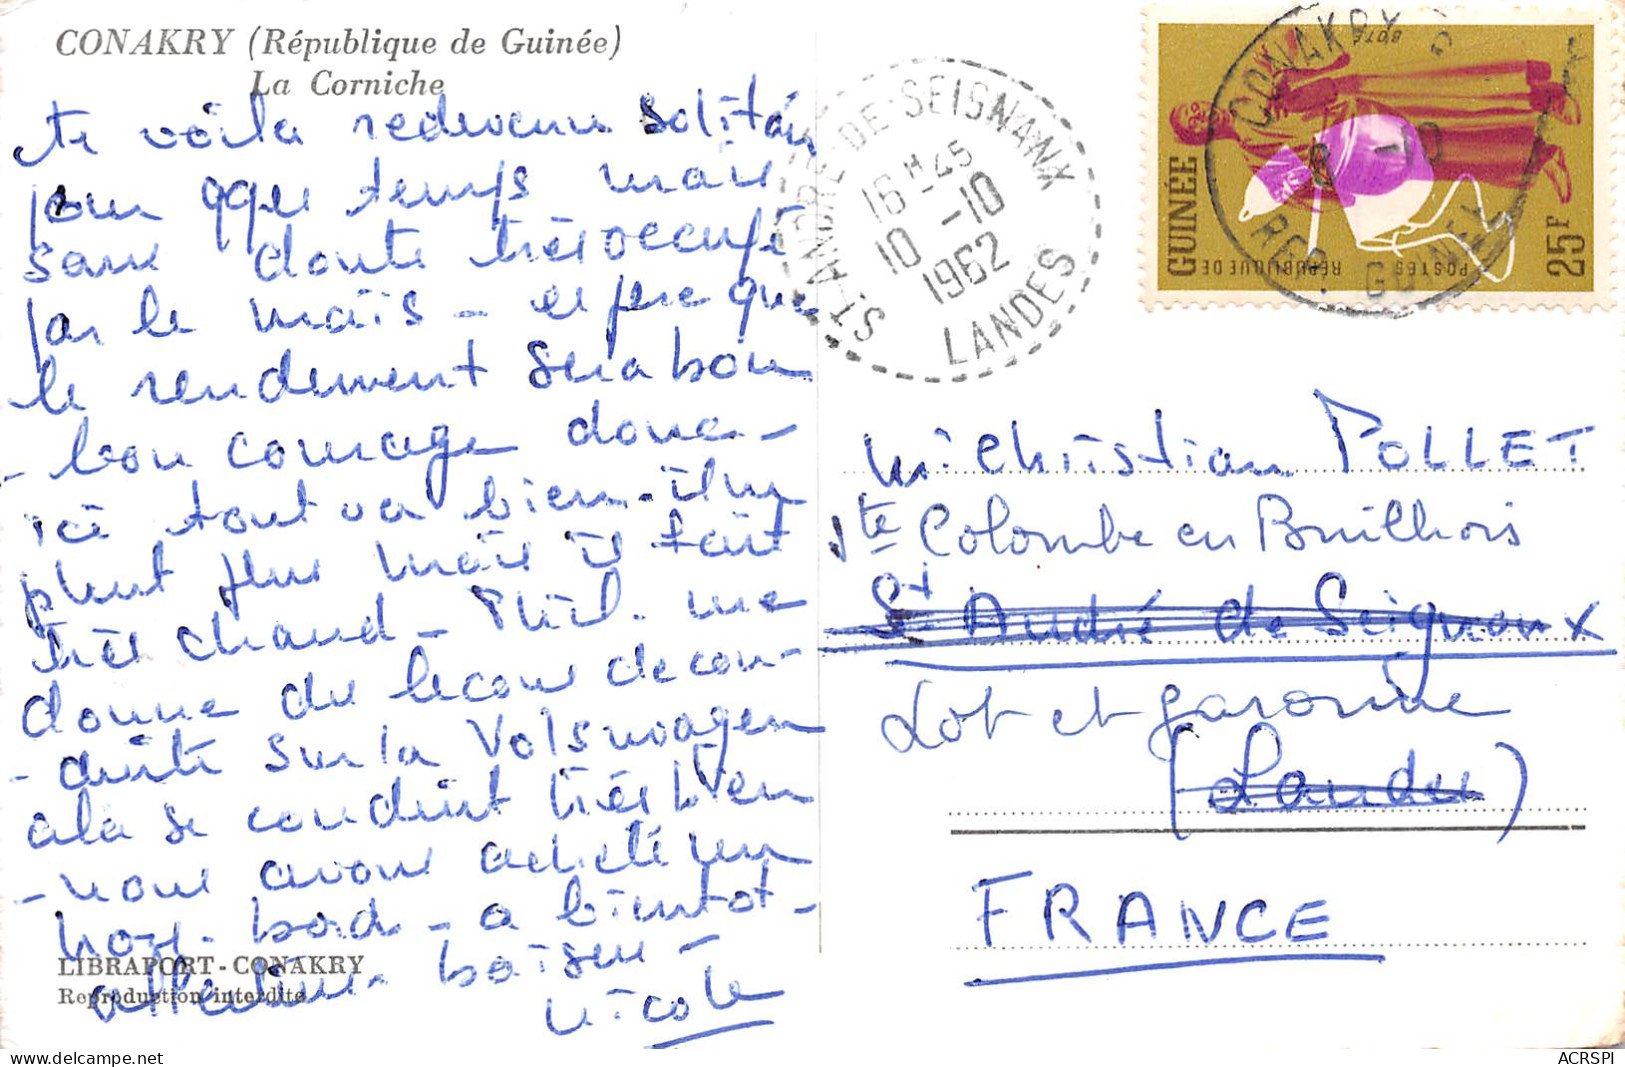 CONAKRY (République de Guinée)
La Corniche
te voila redevenu solitaire
pour qque temps mais
sans doute très occupé
par le maïs - espère que
le rendement sera bon
- bon courage donc -
ici tout va bien - il ne
pleut plus mais il fait
très chaud - Phil. me
donne des leçons de con-
- duite sur la Volswagen
 se conduit très bien
- nous avons acheté un
hors-bord - a bientot -
 baisers -
Nicole
LIBRAPORT - CONAKRY
Reproduction interdite
ST-ANDRE-DE-SEIGNANX
16 H 45
10 -10
1962
LANDES
CONAKRY
8 -10
REP. GUINEE
BOTÉ
RÉPUBLIQUE DE
GUINÉE
POSTES
25F
M. Christian POLLET
Ste Colombe en Bruilhois
St André de Seignanx
Lot et garonne
(Landes)
FRANCE
ACRSPI